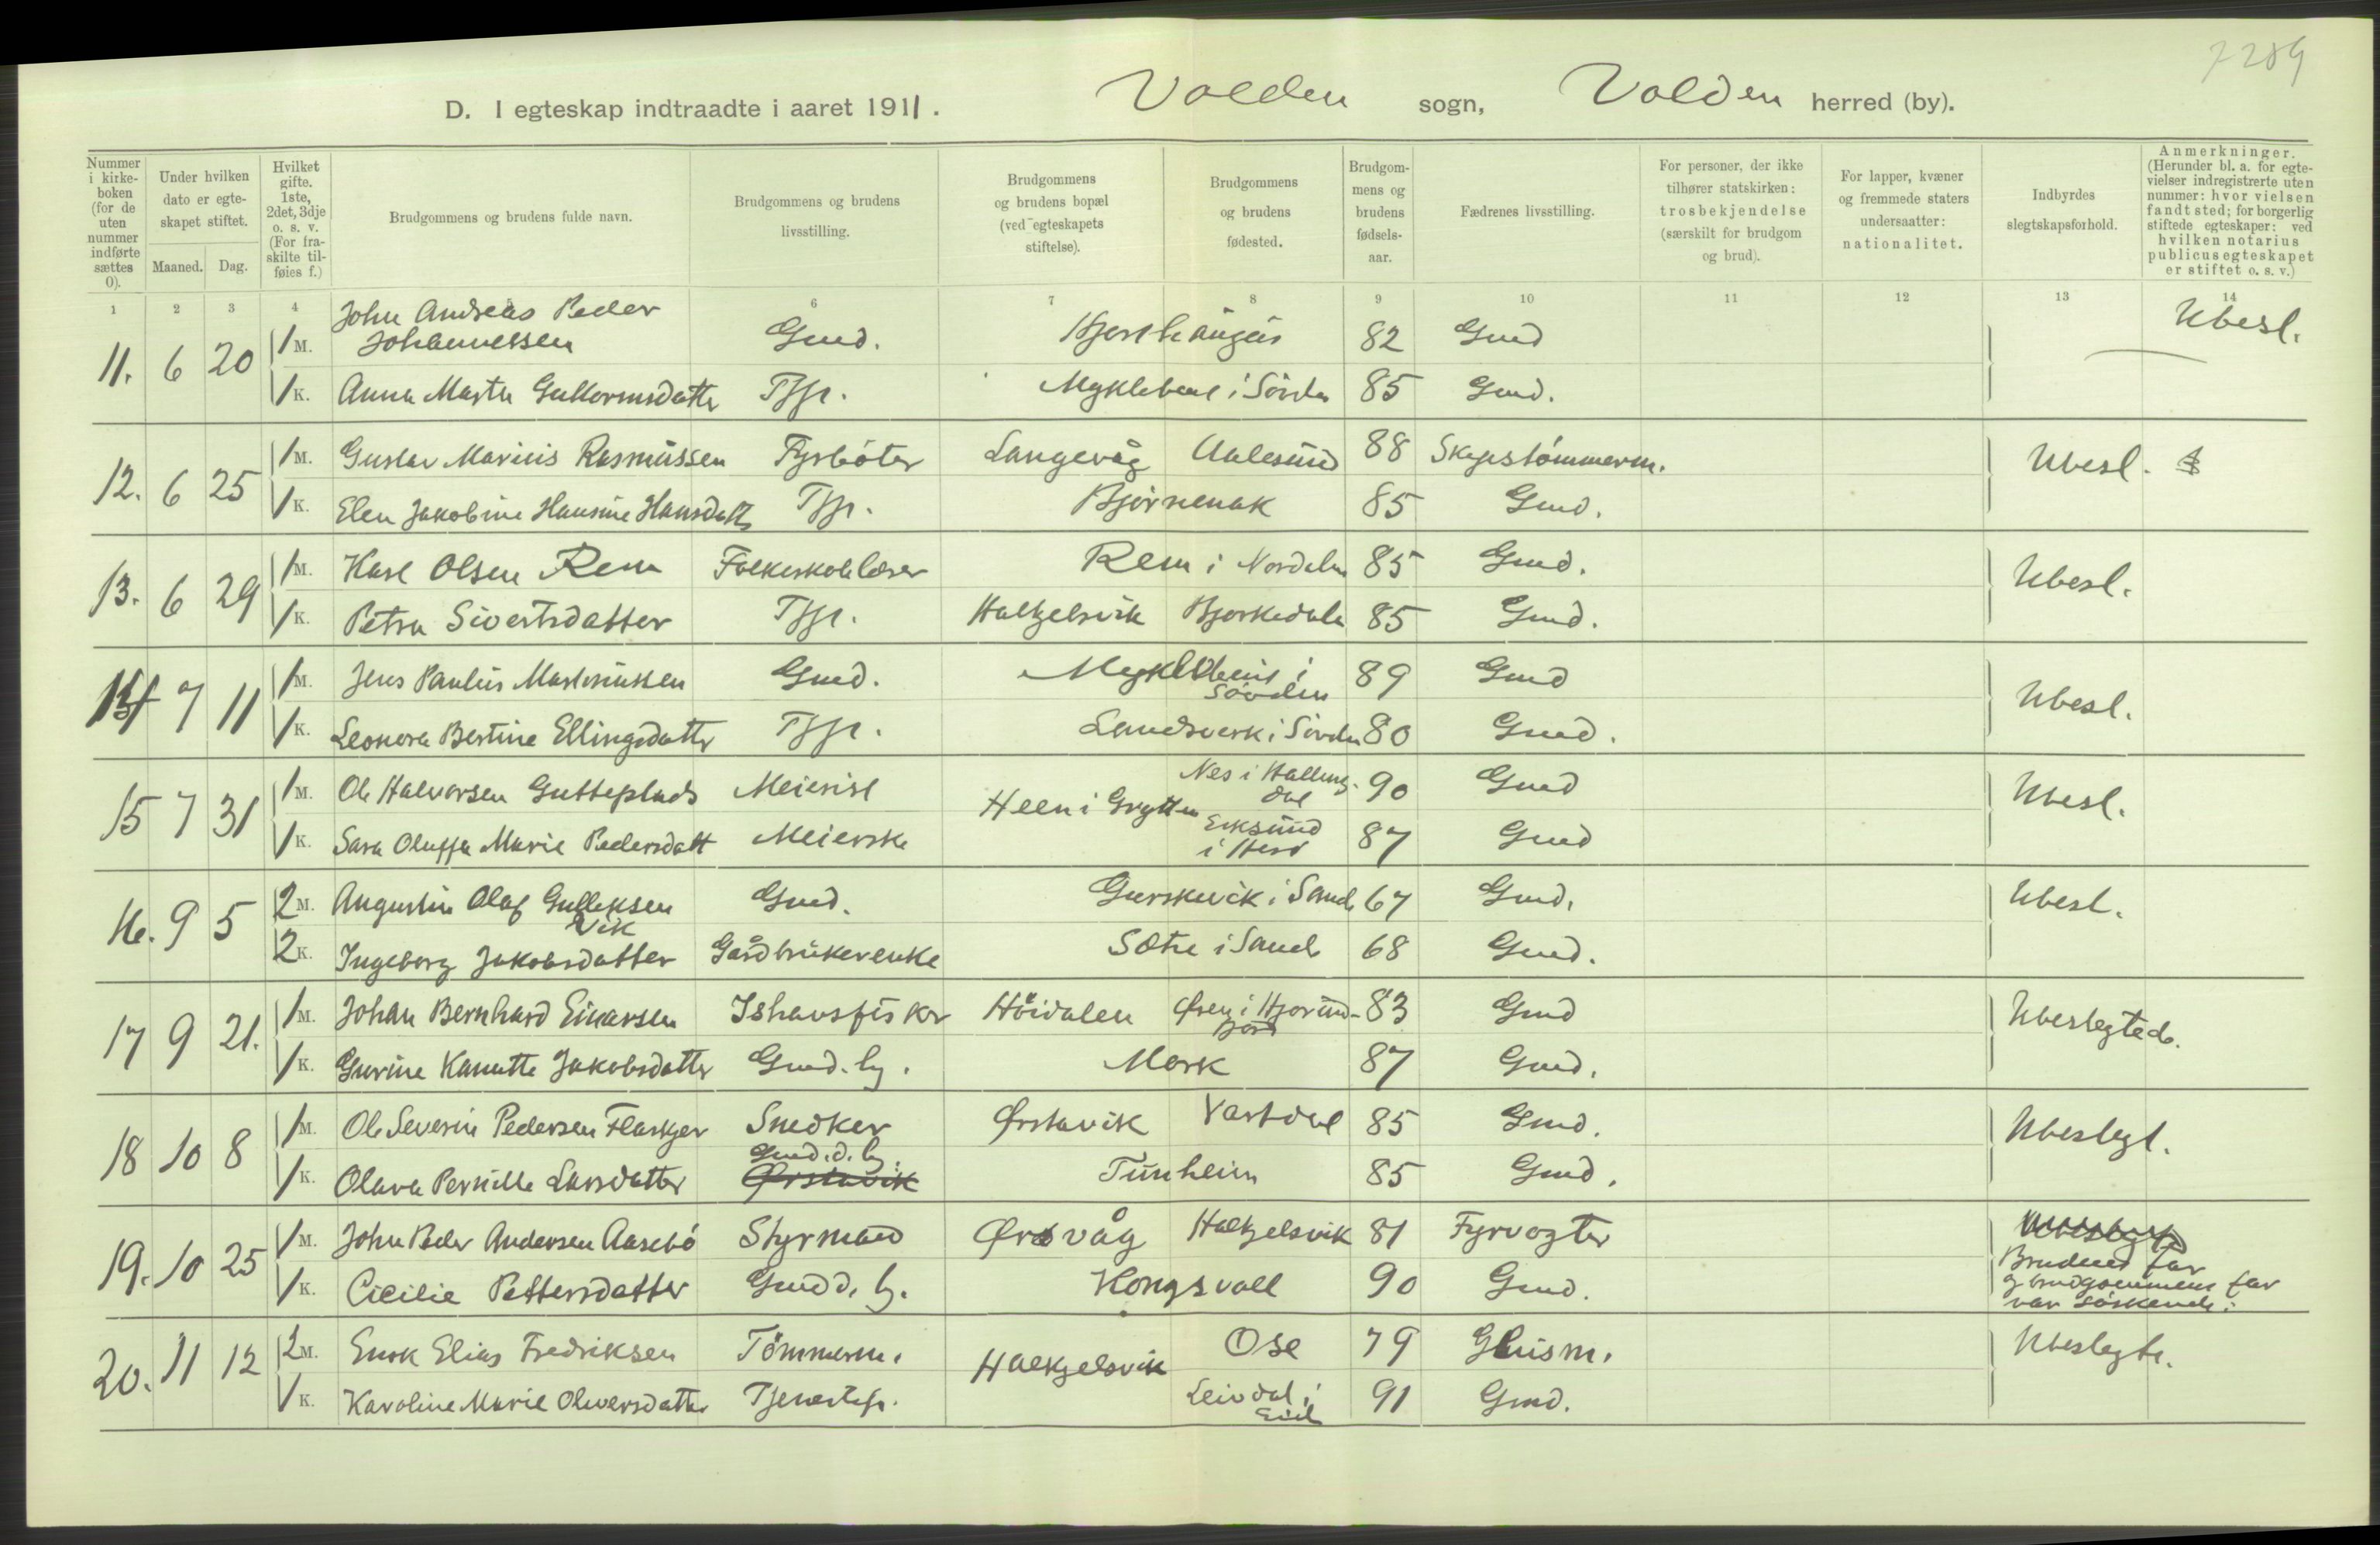 7289
D. I egteskap indtraadte i aaret 1911. Volden sogn, Volden herred (by).
Nummer i kirkeboken (for de uten nummer indførte sættes 0).
Under hvilken dato er egteskapet stiftet.
Maaned. Dag.
Hvilket gifte. 1ste, 2det, 3dje o. s. v. (For fraskilte tilføies f.)
Brudgommens og brudens fulde navn.
Brudgommens og brudens livsstilling.
Brudgommens og brudens bopæl (ved egteskapets stiftelse).
Brudgommens og brudens fødested.
Brudgommens og brudens fødselsaar.
Fædrenes livsstilling.
For personer, der ikke tilhører statskirken: trosbekjendelse (særskilt for brudgom og brud).
For lapper, kvæner og fremmede staters undersaatter: nationalitet.
Indbyrdes slegtskapsforhold.
Anmerkninger. (Herunder bl. a. for egtevielser indregistrerte uten nummer: hvor vielsen fandt sted; for borgerlig stiftede egteskaper: ved hvilken notarius publicus egteskapet er stiftet o. s. v.)
1 2 3 4 6 7 8 9 10 11 12 13 14
John Andreas Peder
11. 6 20 1 M. Johannessen Gmd. 82 Gmd Ubesl.
1 K. Anna Marta Guttormsdatter Tjp. Myklebust i Sövden 85 Gmd.
12. 6 25 1 M. Gustav Marius Rasmüssen Fyrböter Langevåg Aalesund 88 Skipstömmerm. Ubesl.
1 K. Elen Jakobine Hansine Hansdatter Tjp. Bjørnenak 85 Gmd.
13. 6 29 1 M. Karl Olsen Rem Folkeskolelærer Rem i Nordalen 85 Gmd. Ubesl.
1 K. Petra Sivertsdatter Tjp. Halkjelsvik Bjorkedalen 85 Gmd.
14 7 11 1 M. Jens Paulus Martinussen Gmd. Myklebust i Sövden 89 Gmd Ubesl.
1 K. Leonora Bertine Ellingsdatter Tjp. Landsverk i Sövden 80 Gmd.
15 7 31 1 M. Ole Halvorsen Gutteplads Meierist Heen i Grytten Nes i Hallingdal 90 Gmd Ubesl.
1 K. Sara Oluffa Marie Pedersdatt Meierske Eiksund i Herø 87 Gmd
16. 9 5 2 M. Augustin Olaf Gulleksen Vik Gmd. Gurskevik i Sande 67 Gmd. Ubesl.
2 K. Ingeborg Jakobsdatter Gårdbrukerenke Sætre i Sande 68 Gmd.
17 9 21. 1 M. Johan Bernhard Einarsen Ishavsfisker Höidalen Øsen i Hjorundfjord 83 Gmd Ubeslegtede.
1 K. Gurine Kanutte Jakobsdatter Gmd. by. Mork 87 Gmd.
18 10 8 1 M. Ole Severin Pedersen Flaskjer Snedker Ørstavik Vartdal 85 Gmd. Ubeslegt.
1 K. Olava Pernille Larsdatter Gmd. d. by. Ørstavik Tunheim 85 Gmd.
19. 10 25 1 M. John Peder Andersen Aasebö Styrmand Ørsvåg Halkjelsvik 81 Fyrvogter Brudens far og brudgommens far var söskende.
1 K. Cicilie Pettersdatter Gmd d. by. Kongsvoll 90 Gmd.
20. 11 12 2 M. Enok Elias Fredriksen Tömmerm. Halkjelsvik Ose 79 Ghusm. Ubeslegte.
1 K. Karoline Marie Oliversdatter Tjenestep. Leivdal i Eid 91 Gmd.